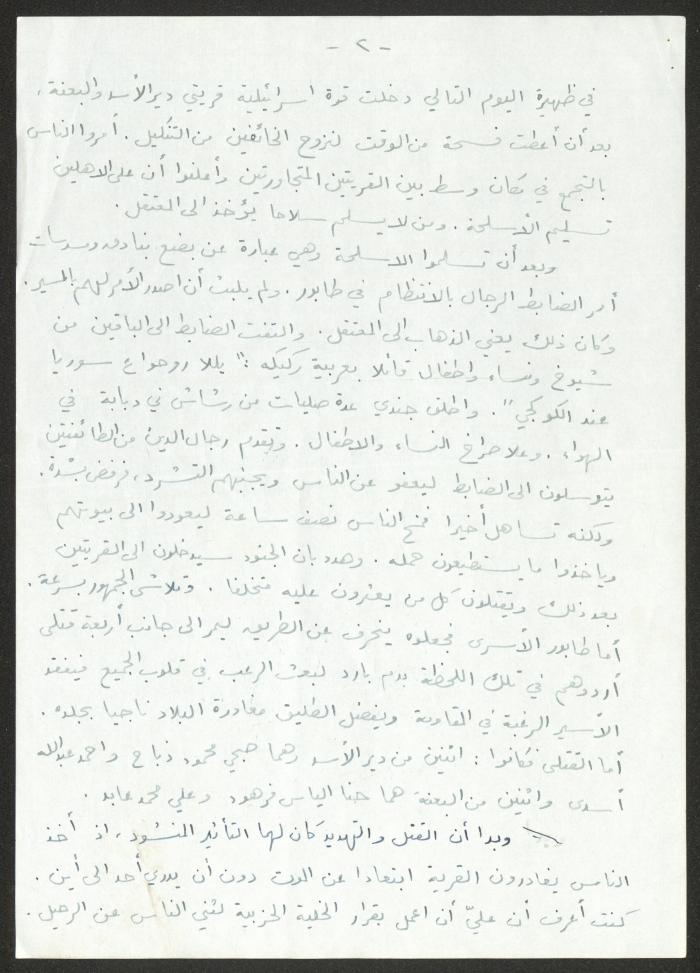 - ٢ -
في ظهيرة اليوم التالي دخلت قوة اسرائيلية قريتي ديرالأسد والبعنة،
بعد أن أعطت فسحة من الوقت لنزوح الخائفين من التنكيل. أمروا الناس
بالتجمع في مكان وسط بين القريتين المتجاورتين وأعلنوا أن على الاهلين
تسليم الأسلحة. ومن لا يسلم سلاحا يؤخذ الى المعتقل.
وبعد أن تسلموا الاسلحة وهي عبارة عن بضع بنادق ومسدسات
أمر الضابط الرجال بالانتظام في طابور. ولم يلبث أن اصدر الأمر لهم بالمسير.
وكان ذلك يعني الذهاب الى المعتقل. والتفت الضابط الى الباقين من
شيوخ ونساء واطفال قائلا بعربية ركيكة: "يللا روحوا ع سوريا
عند الكوكجي". واطلق جندي عدة صليات من رشاش في دبابة في
الهواء. وعلا صراخ النساء والاطفال. وتقدم رجال الدين من الطائفتين
يتوسلون الى الضابط ليعفو عن الناس ويجنبهم التشرد، فرفض بشدة.
ولكنه تساهل أخيرا فمنح الناس نصف ساعة ليعودوا الى بيوتهم
وياخذوا ما يستطيعون حمله. وهدد بان الجنود سيدخلون الى القريتين
بعد ذلك ويقتلون كل من يعثرون عليه متخلفا. وتلاشى الجمهور بسرعة.
أما طابور الأسرى فجعلوه ينحرف عن الطريق ليمر الى جانب أربعة قتلى
أردوهم في تلك اللحظة بدم بارد لبعث الرعب في قلوب الجميع فيفقد
الأسير الرغبة في المقاومة ويفضل الطليق مغادرة البلاد ناجيا بجلده.
أما القتلى فكانوا: اثنين من ديرالأسد وهما صبحي محمود ذباح واحمد عبدالله
أسدى واثنين من البعنة هما حنا الياس فرهود وعلي محمد عابد.
وبدا أن القتل والتهديد كان لهما التأثير المنشود، اذ أخذ
الناس يغادرون القرية ابتعادا عن الموت دون أن يدري أحد الى أين.
كنت أعرف أن عليّ أن اعمل بقرار الخلية الحزبية لثني الناس عن الرحيل.